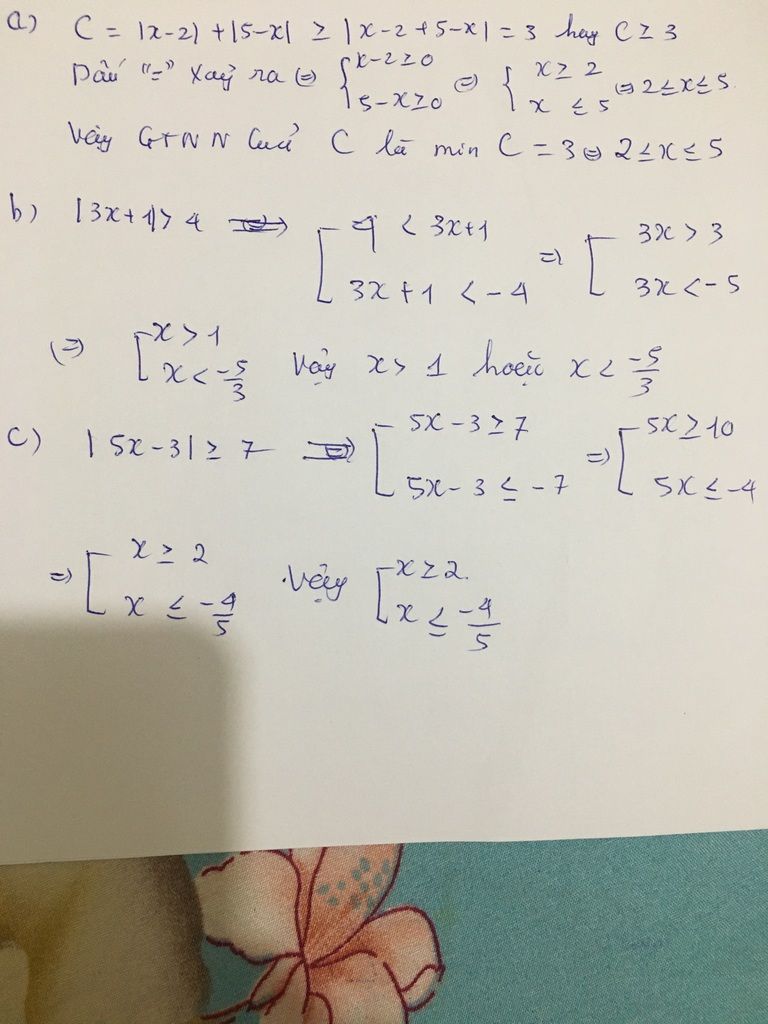 a) C = |x-2| + |5-x| ≥ |x-2+5-x| = 3 hay C ≥ 3
Dấu "=" xảy ra ⇔ { x-2≥0 5-x≥0 ⇔ { x ≥ 2 x ≤ 5 ⇔ 2≤x≤5
Vậy GTNN của C là min C = 3 ⇔ 2≤x≤5
b) |3x+1|>4 ⇒ [ 4 < 3x+1 3x+1 < -4 ⇒ [ 3x > 3 3x < -5
⇔ [ x > 1 x < -5/3 Vậy x > 1 hoặc x < -5/3
c) |5x-3| ≥ 7 ⇒ [ 5x-3 ≥ 7 5x-3 ≤ -7 ⇒ [ 5x ≥ 10 5x ≤ -4
⇒ [ x ≥ 2 x ≤ -4/5 Vậy [ x ≥ 2. x ≤ -4/5